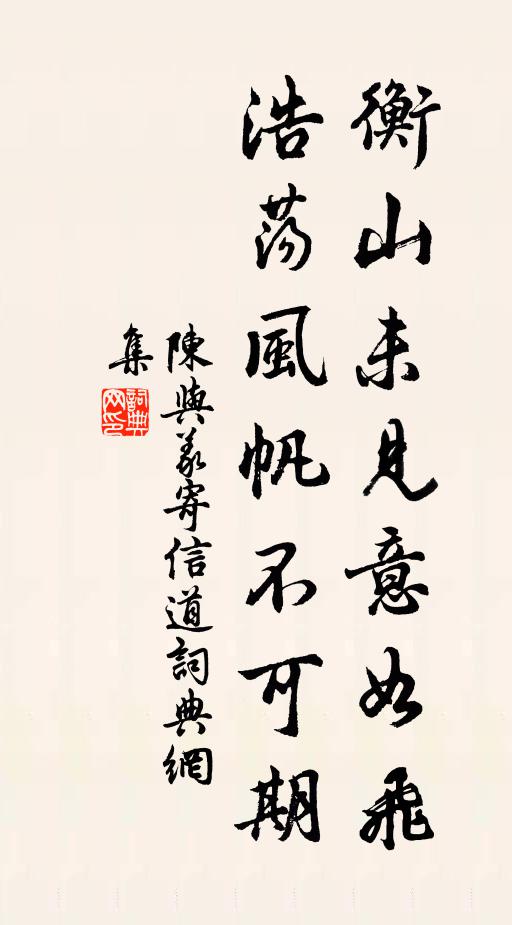 衡山未見意如飛
浩蕩風帆不可期
陳與義寄信道詞典網
集
詞典
网印